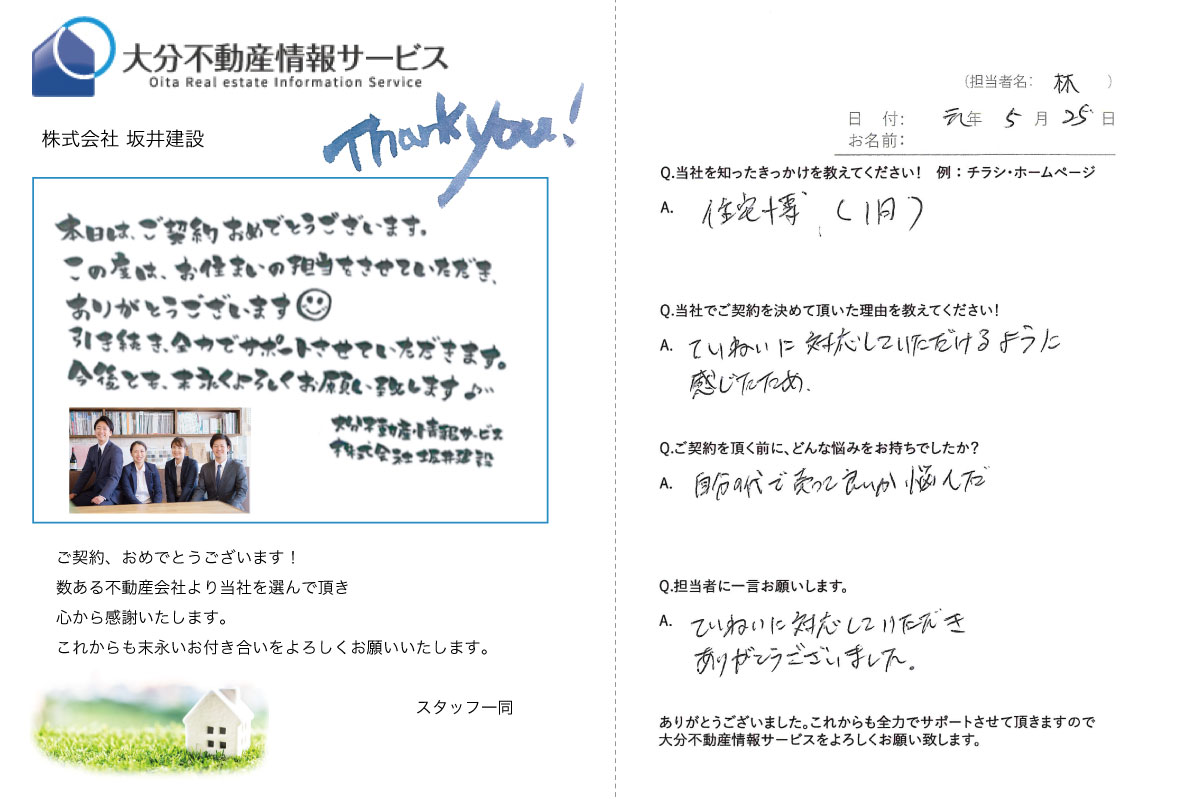 大分不動産情報サービス
Oita Real estate Information Service
株式会社 坂井建設
Thank you!
本日は、ご契約おめでとうございます。
この度は、お住まいの担当をさせていただき、
ありがとうございます
引き続き、全力でサポートさせていただきます。
今後とも、末永くよろしくお願い致します♪
大分不動産情報サービス
株式会社坂井建設
ご契約、おめでとうございます！
数ある不動産会社より当社を選んで頂き
心から感謝いたします。
これからも末永いお付き合いをよろしくお願いいたします。
スタッフ一同
（担当者名： 林 ）
日 付： 元年 5 月 25 日
お名前：
Q.当社を知ったきっかけを教えてください！ 例：チラシ・ホームページ
A. 住宅博（1日）
Q.当社でご契約を決めて頂いた理由を教えてください！
A. ていねいに対応していただけるように
感じたため.
Q.ご契約を頂く前に、どんな悩みをお持ちでしたか？
A. 自分の代で売って良いか悩んだ
Q.担当者に一言お願いします。
A. ていねいに対応していただき
ありがとうございました。
ありがとうございました。これからも全力でサポートさせて頂きますので
大分不動産情報サービスをよろしくお願い致します。